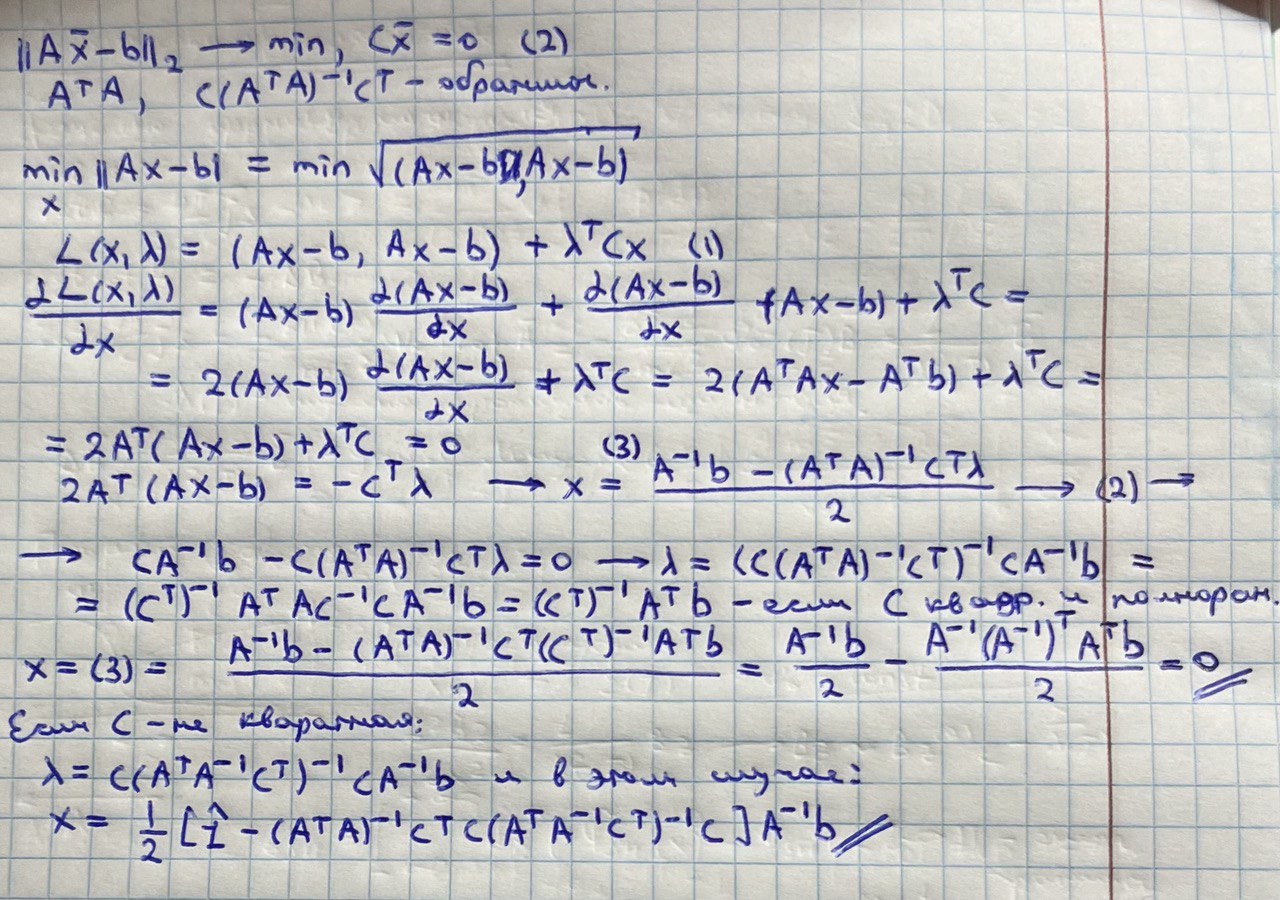 ||Ax̄ - b||₂ → min, Cx̄ = 0 (2)
AᵀA, C(AᵀA)⁻¹Cᵀ - обратимы.
min ||Ax-b|| = min √(Ax-b, Ax-b)
x
L(x,λ) = (Ax-b, Ax-b) + λᵀCx (1)
∂L(x,λ)/∂x = (Ax-b) ∂(Ax-b)/∂x + ∂(Ax-b)/∂x (Ax-b) + λᵀC =
= 2(Ax-b) ∂(Ax-b)/∂x + λᵀC = 2(AᵀAx - Aᵀb) + λᵀC =
= 2Aᵀ(Ax-b) + λᵀC = 0
2Aᵀ(Ax-b) = -Cᵀλ → x = (3) (A⁻¹b - (AᵀA)⁻¹Cᵀλ)/2 → (2) →
→ CA⁻¹b - C(AᵀA)⁻¹Cᵀλ = 0 → λ = (C(AᵀA)⁻¹Cᵀ)⁻¹CA⁻¹b =
= (Cᵀ)⁻¹AᵀAC⁻¹CA⁻¹b = (Cᵀ)⁻¹Aᵀb - если C квадр. и полноран.
x = (3) = (A⁻¹b - (AᵀA)⁻¹Cᵀ(Cᵀ)⁻¹Aᵀb)/2 = A⁻¹b/2 - A⁻¹(A⁻¹)ᵀAᵀb/2 = 0
Если C - не кваратная:
λ = C(AᵀA⁻¹Cᵀ)⁻¹CA⁻¹b и в этом случае:
x = 1/2 [1̂ - (AᵀA)⁻¹CᵀC(AᵀA⁻¹Cᵀ)⁻¹C]A⁻¹b